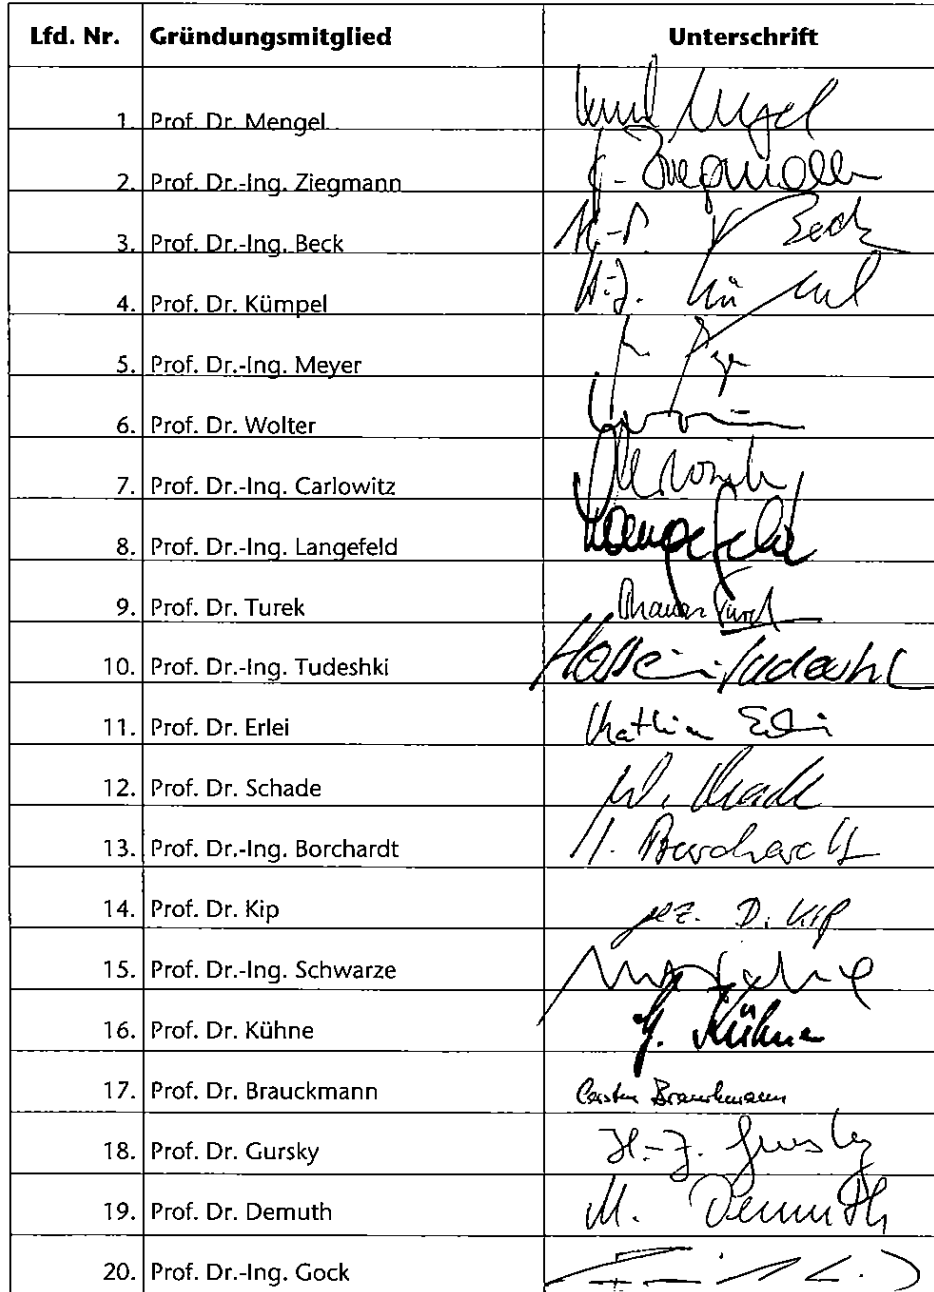 Lfd. Nr. Gründungsmitglied Unterschrift
1. Prof. Dr. Mengel
2. Prof. Dr.-Ing. Ziegmann G. Ziegmann
3. Prof. Dr.-Ing. Beck H.-P. Beck
4. Prof. Dr. Kümpel H.-J. Kümpel
5. Prof. Dr.-Ing. Meyer
6. Prof. Dr. Wolter
7. Prof. Dr.-Ing. Carlowitz
8. Prof. Dr.-Ing. Langefeld Langefeld
9. Prof. Dr. Turek Thomas Turek
10. Prof. Dr.-Ing. Tudeshki Hossein Tudeshki
11. Prof. Dr. Erlei Mathias Erlei
12. Prof. Dr. Schade W. Schade
13. Prof. Dr.-Ing. Borchardt Borchardt
14. Prof. Dr. Kip gez. D. Kip
15. Prof. Dr.-Ing. Schwarze
16. Prof. Dr. Kühne Kühne
17. Prof. Dr. Brauckmann Carsten Brauckmann
18. Prof. Dr. Gursky H.-J. Gursky
19. Prof. Dr. Demuth M. Demuth
20. Prof. Dr.-Ing. Gock